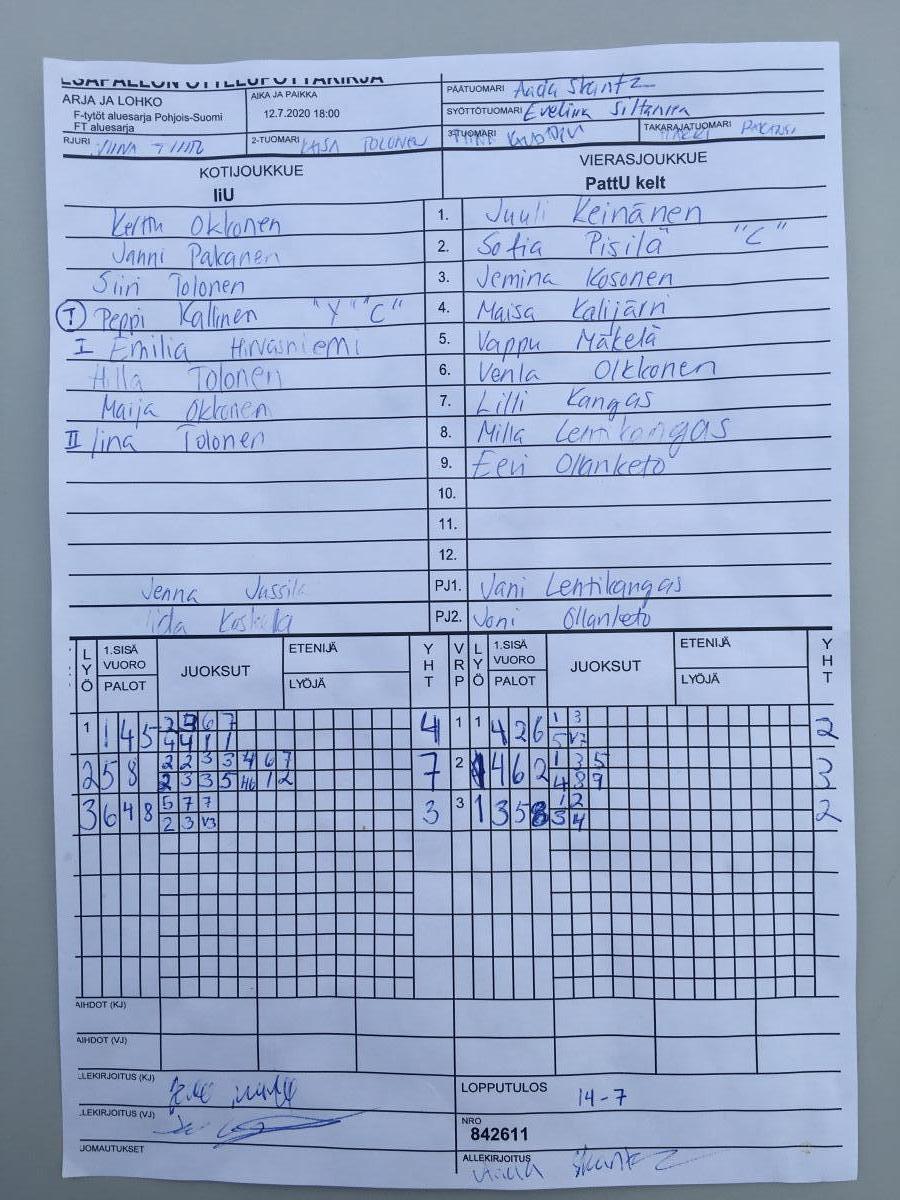 ARJA JA LOHKO
F-tytöt aluesarja Pohjois-Suomi
FT aluesarja
AIKA JA PAIKKA
12.7.2020 18:00
PÄÄTUOMARI Aada Skantz
SYÖTTÖTUOMARI Eveliina
RJURI
2-TUOMARI KAISA TOLONEN
3-TUOMARI
TAKARAJATUOMARI
KOTIJOUKKUE
IiU
VIERASJOUKKUE
PattU kelt
Kerttu Okkonen 1. Juuli Keinänen
Janni Pakanen 2. Sofia Pisilä "C"
Siiri Tolonen 3. Jemina Kosonen
T Peppi Kallinen "Y" "C" 4. Maisa Kalijärvi
I Emilia Hirvasniemi 5. Vappu Mäkelä
Hilla Tolonen 6. Venla Olkkonen
Maija Okkonen 7. Lilli Kangas
II Iina Tolonen 8. Milla Lehtikangas
9. Eevi Ollanketo
10.
11.
12.
Jenna PJ1. Jani Lehtikangas
Iida PJ2. Joni Ollanketo
LYÖ 1.SISÄ VUORO PALOT JUOKSUT ETENIJÄ LYÖJÄ YHT VRP LYÖ 1.SISÄ VUORO PALOT JUOKSUT ETENIJÄ LYÖJÄ YHT
1 1 4 5 2 3 6 7 4 1 1 4 2 6 1 3 2
4 4 1 1 5 V3
2 5 8 2 2 3 3 4 6 7 7 2 4 6 2 1 3 5 3
2 3 3 5 1 2 4 8 9
3 6 4 8 5 7 7 3 3 1 3 5 8 1 2 2
2 3 V3 3 4
AIHDOT (KJ)
AIHDOT (VJ)
LLEKIRJOITUS (KJ)
LOPPUTULOS 14-7
LLEKIRJOITUS (VJ)
NRO
842611
UOMAUTUKSET
ALLEKIRJOITUS Skantz